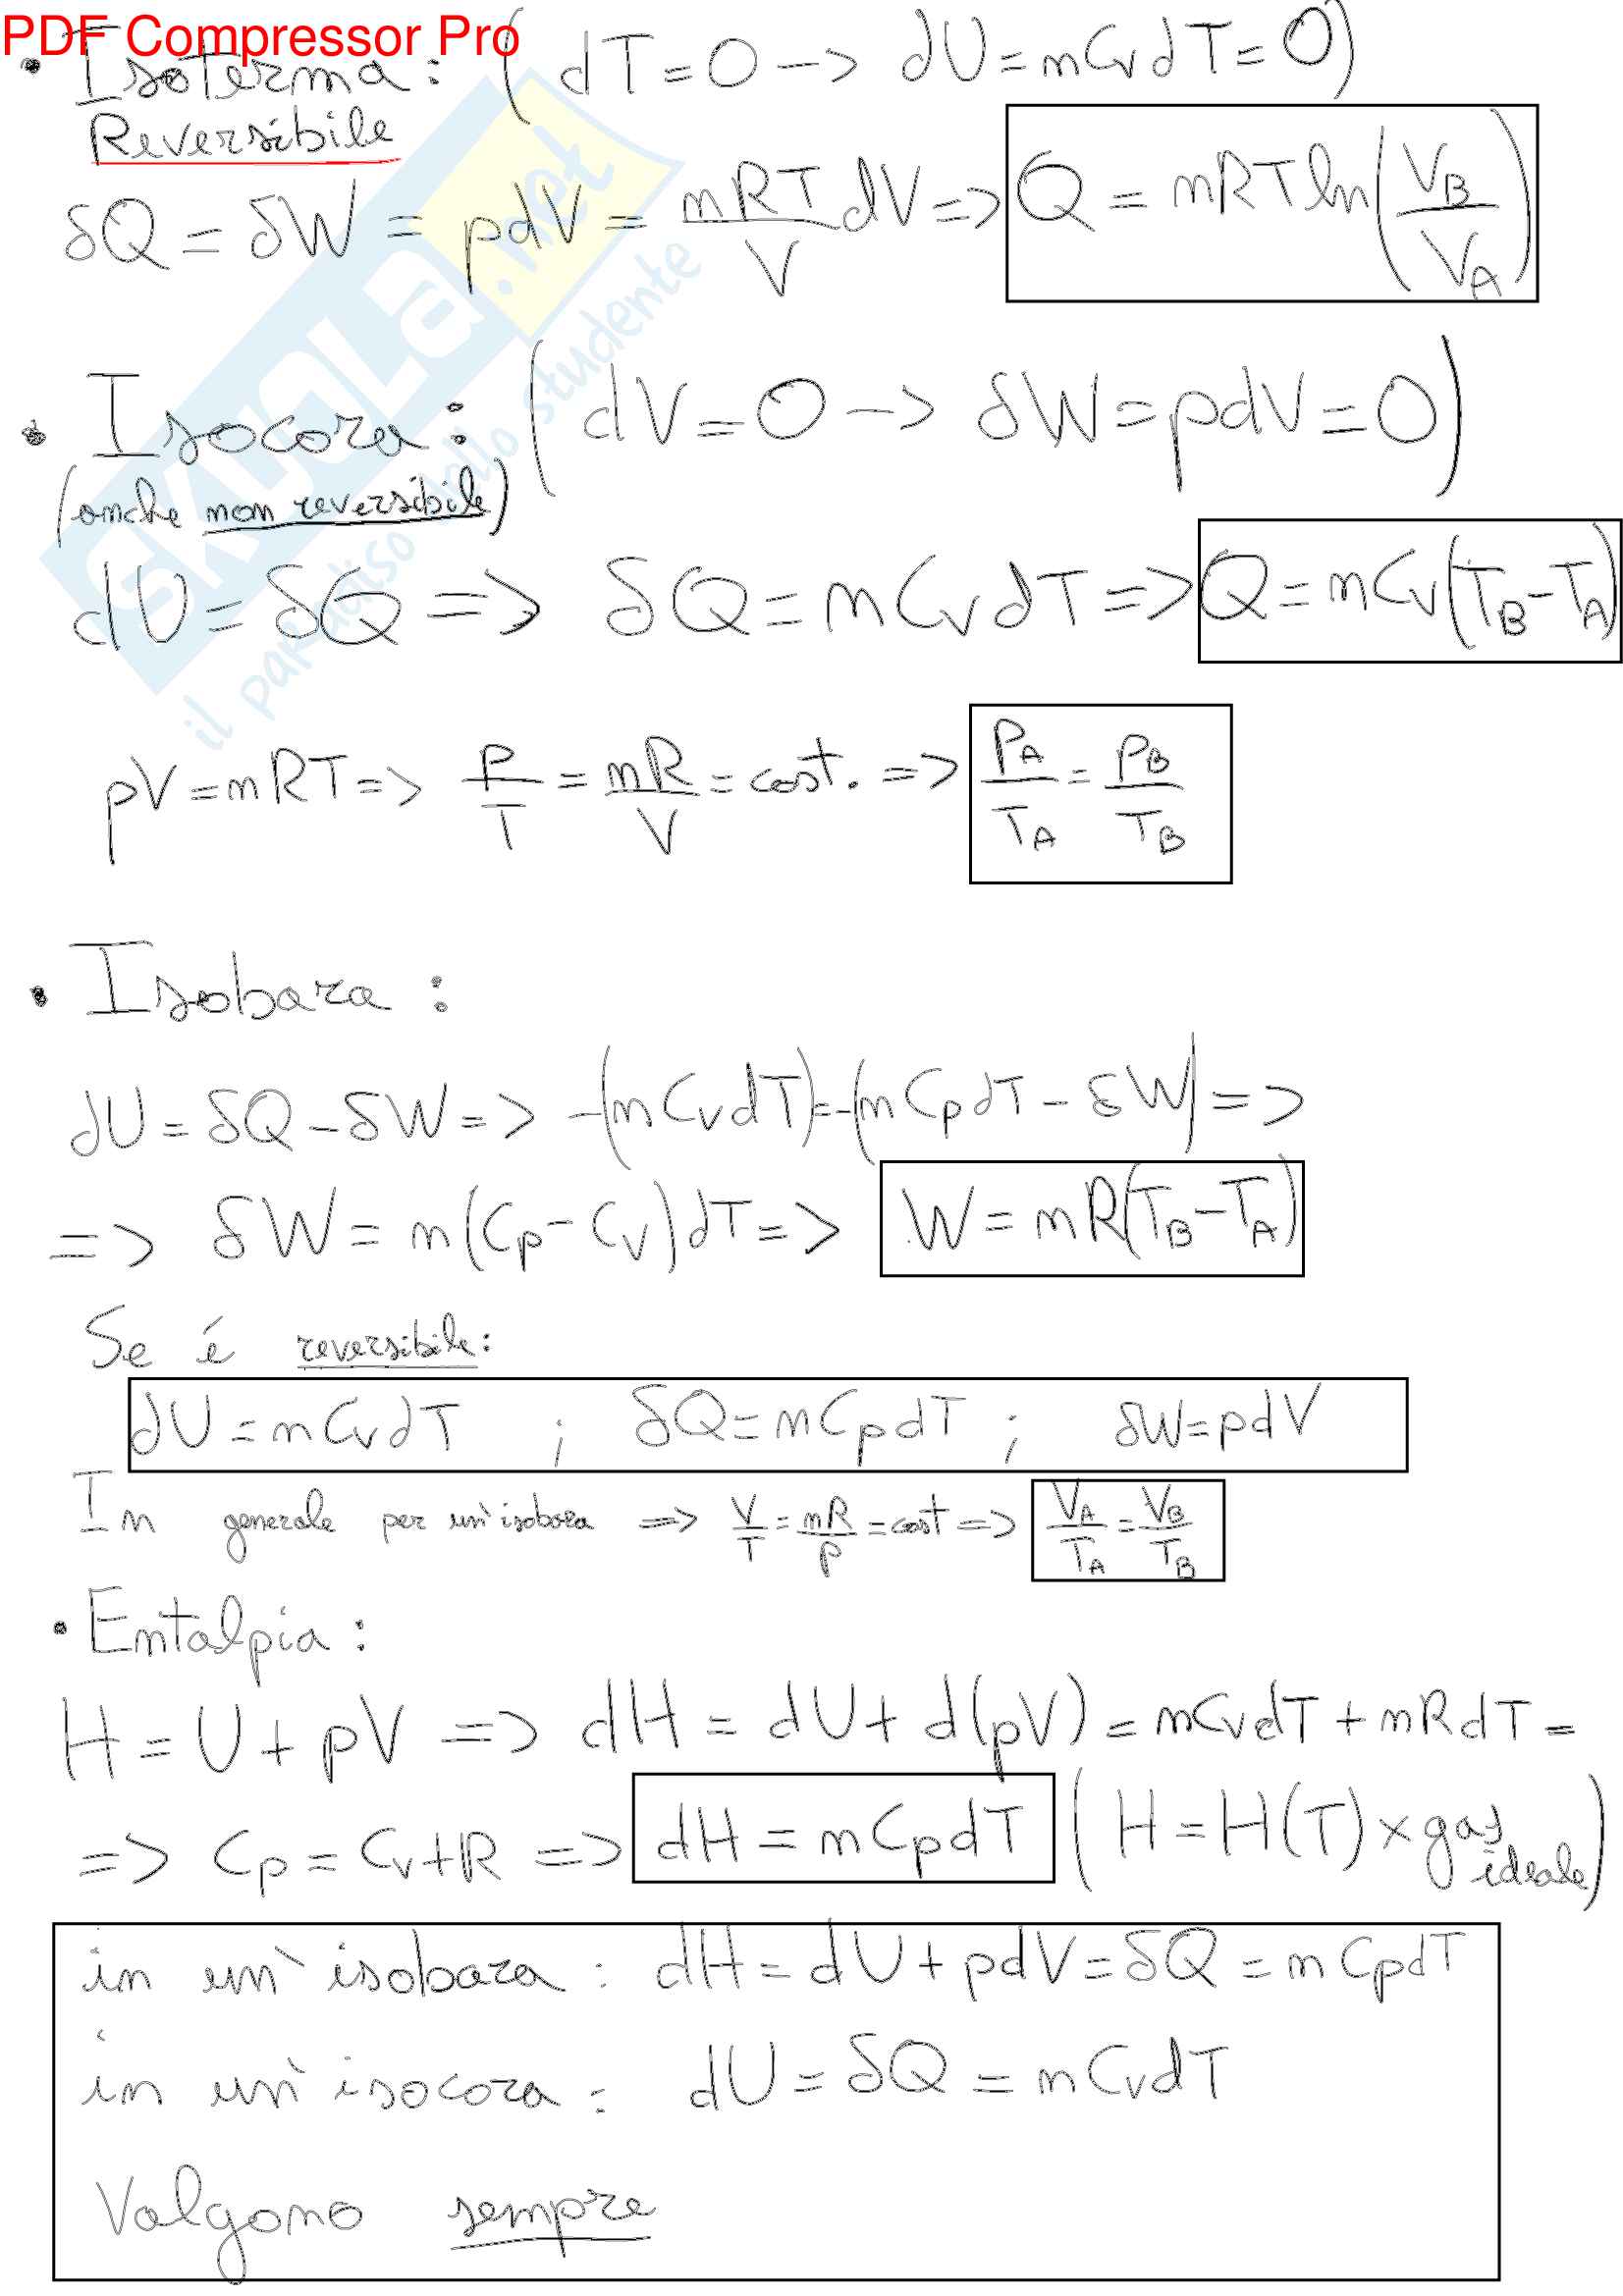 PDF Compressor Pro
• Isoterma: (dT=0 -> dU=nCvdT=0)
Reversibile
δQ = δW = pdV = nRT/V dV => Q = nRT ln(V_B/V_A)
• Isocora: (dV=0 -> δW=pdV=0)
(anche non reversibile)
dU=δQ => δQ=nCvdT => Q=nCv(T_B-T_A)
pV=nRT => P/T = nR/V = cost. => P_A/T_A = P_B/T_B
• Isobara:
dU=δQ-δW => -(nCvdT)=-(nCpdT-δW) =>
=> δW=n(Cp-Cv)dT => W=nR(T_B-T_A)
Se é reversibile:
dU=nCvdT ; δQ=nCpdT ; δW=pdV
In generale per un'isobara => V/T = nR/p = cost => V_A/T_A = V_B/T_B
• Entalpia:
H=U+pV => dH=dU+d(pV)=nCvdT+nRdT=
=> Cp=Cv+R => dH=nCpdT (H=H(T) x gas ideale)
in un'isobara: dH=dU+pdV=δQ=nCpdT
in un'isocora: dU=δQ=nCvdT
Valgono sempre
SKUOLA.net
il paradiso dello studente